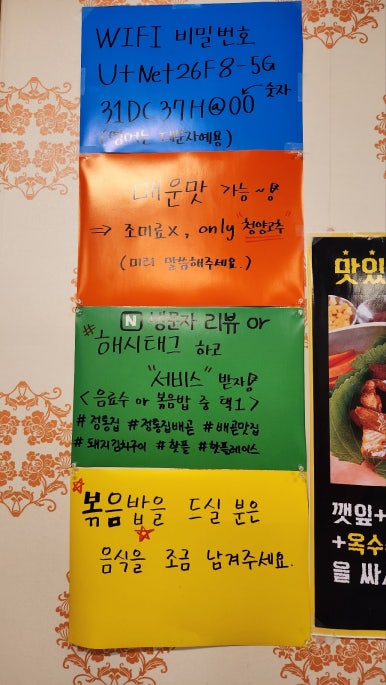 WIFI 비밀번호
U+Net26F8-5G
31DC37H@00 ← 숫자
(영어는 대문자예용)
매운맛 가능~!
⇒ 조미료X, only "청양고추"
(미리 말씀해주세요.)
#N 영문자 리뷰 or
해시태그 하고
"서비스" 받자!
<음료수 or 볶음밥 중 택1>
#정통집 #정통집배곧 #배곧맛집
#돼지김치구이 #핫플 #핫플레이스
볶음밥을 드실 분은
음식을 조금 남겨주세요.
맛있
깻잎+
+옥수
을 싸